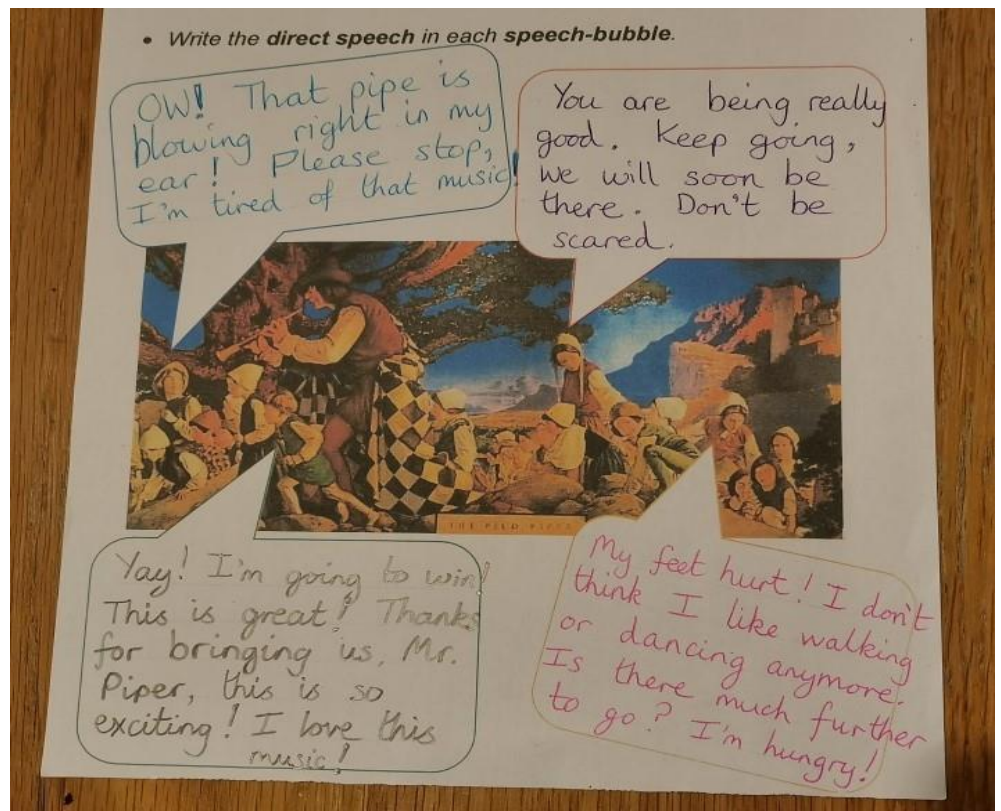 • Write the direct speech in each speech-bubble.
OW! That pipe is
blowing right in my
ear! Please stop,
I'm tired of that music!
You are being really
good. Keep going,
we will soon be
there. Don't be
scared.
THE PIED PIPER
Yay! I'm going to win!
This is great! Thanks
for bringing us, Mr.
Piper, this is so
exciting! I love this
music!
My feet hurt! I don't
think I like walking
or dancing anymore.
Is there much further
to go? I'm hungry!